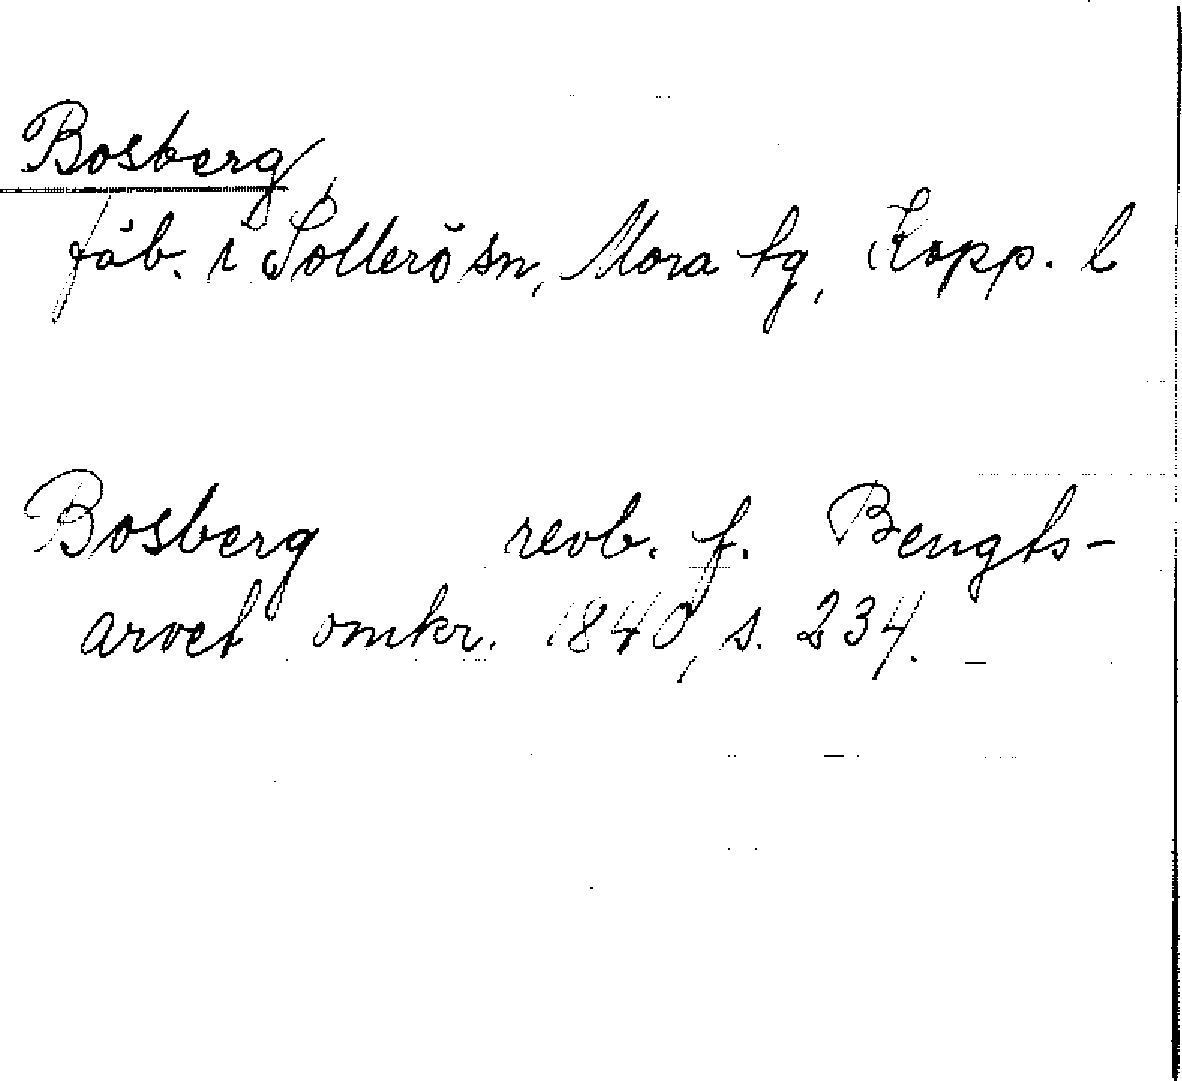 Bosberg
fäb. i Sollerö sn, Mora tg, Kopp. l
Bosberg revb. f. Bengts-
arvet omkr. 1840, s. 234.